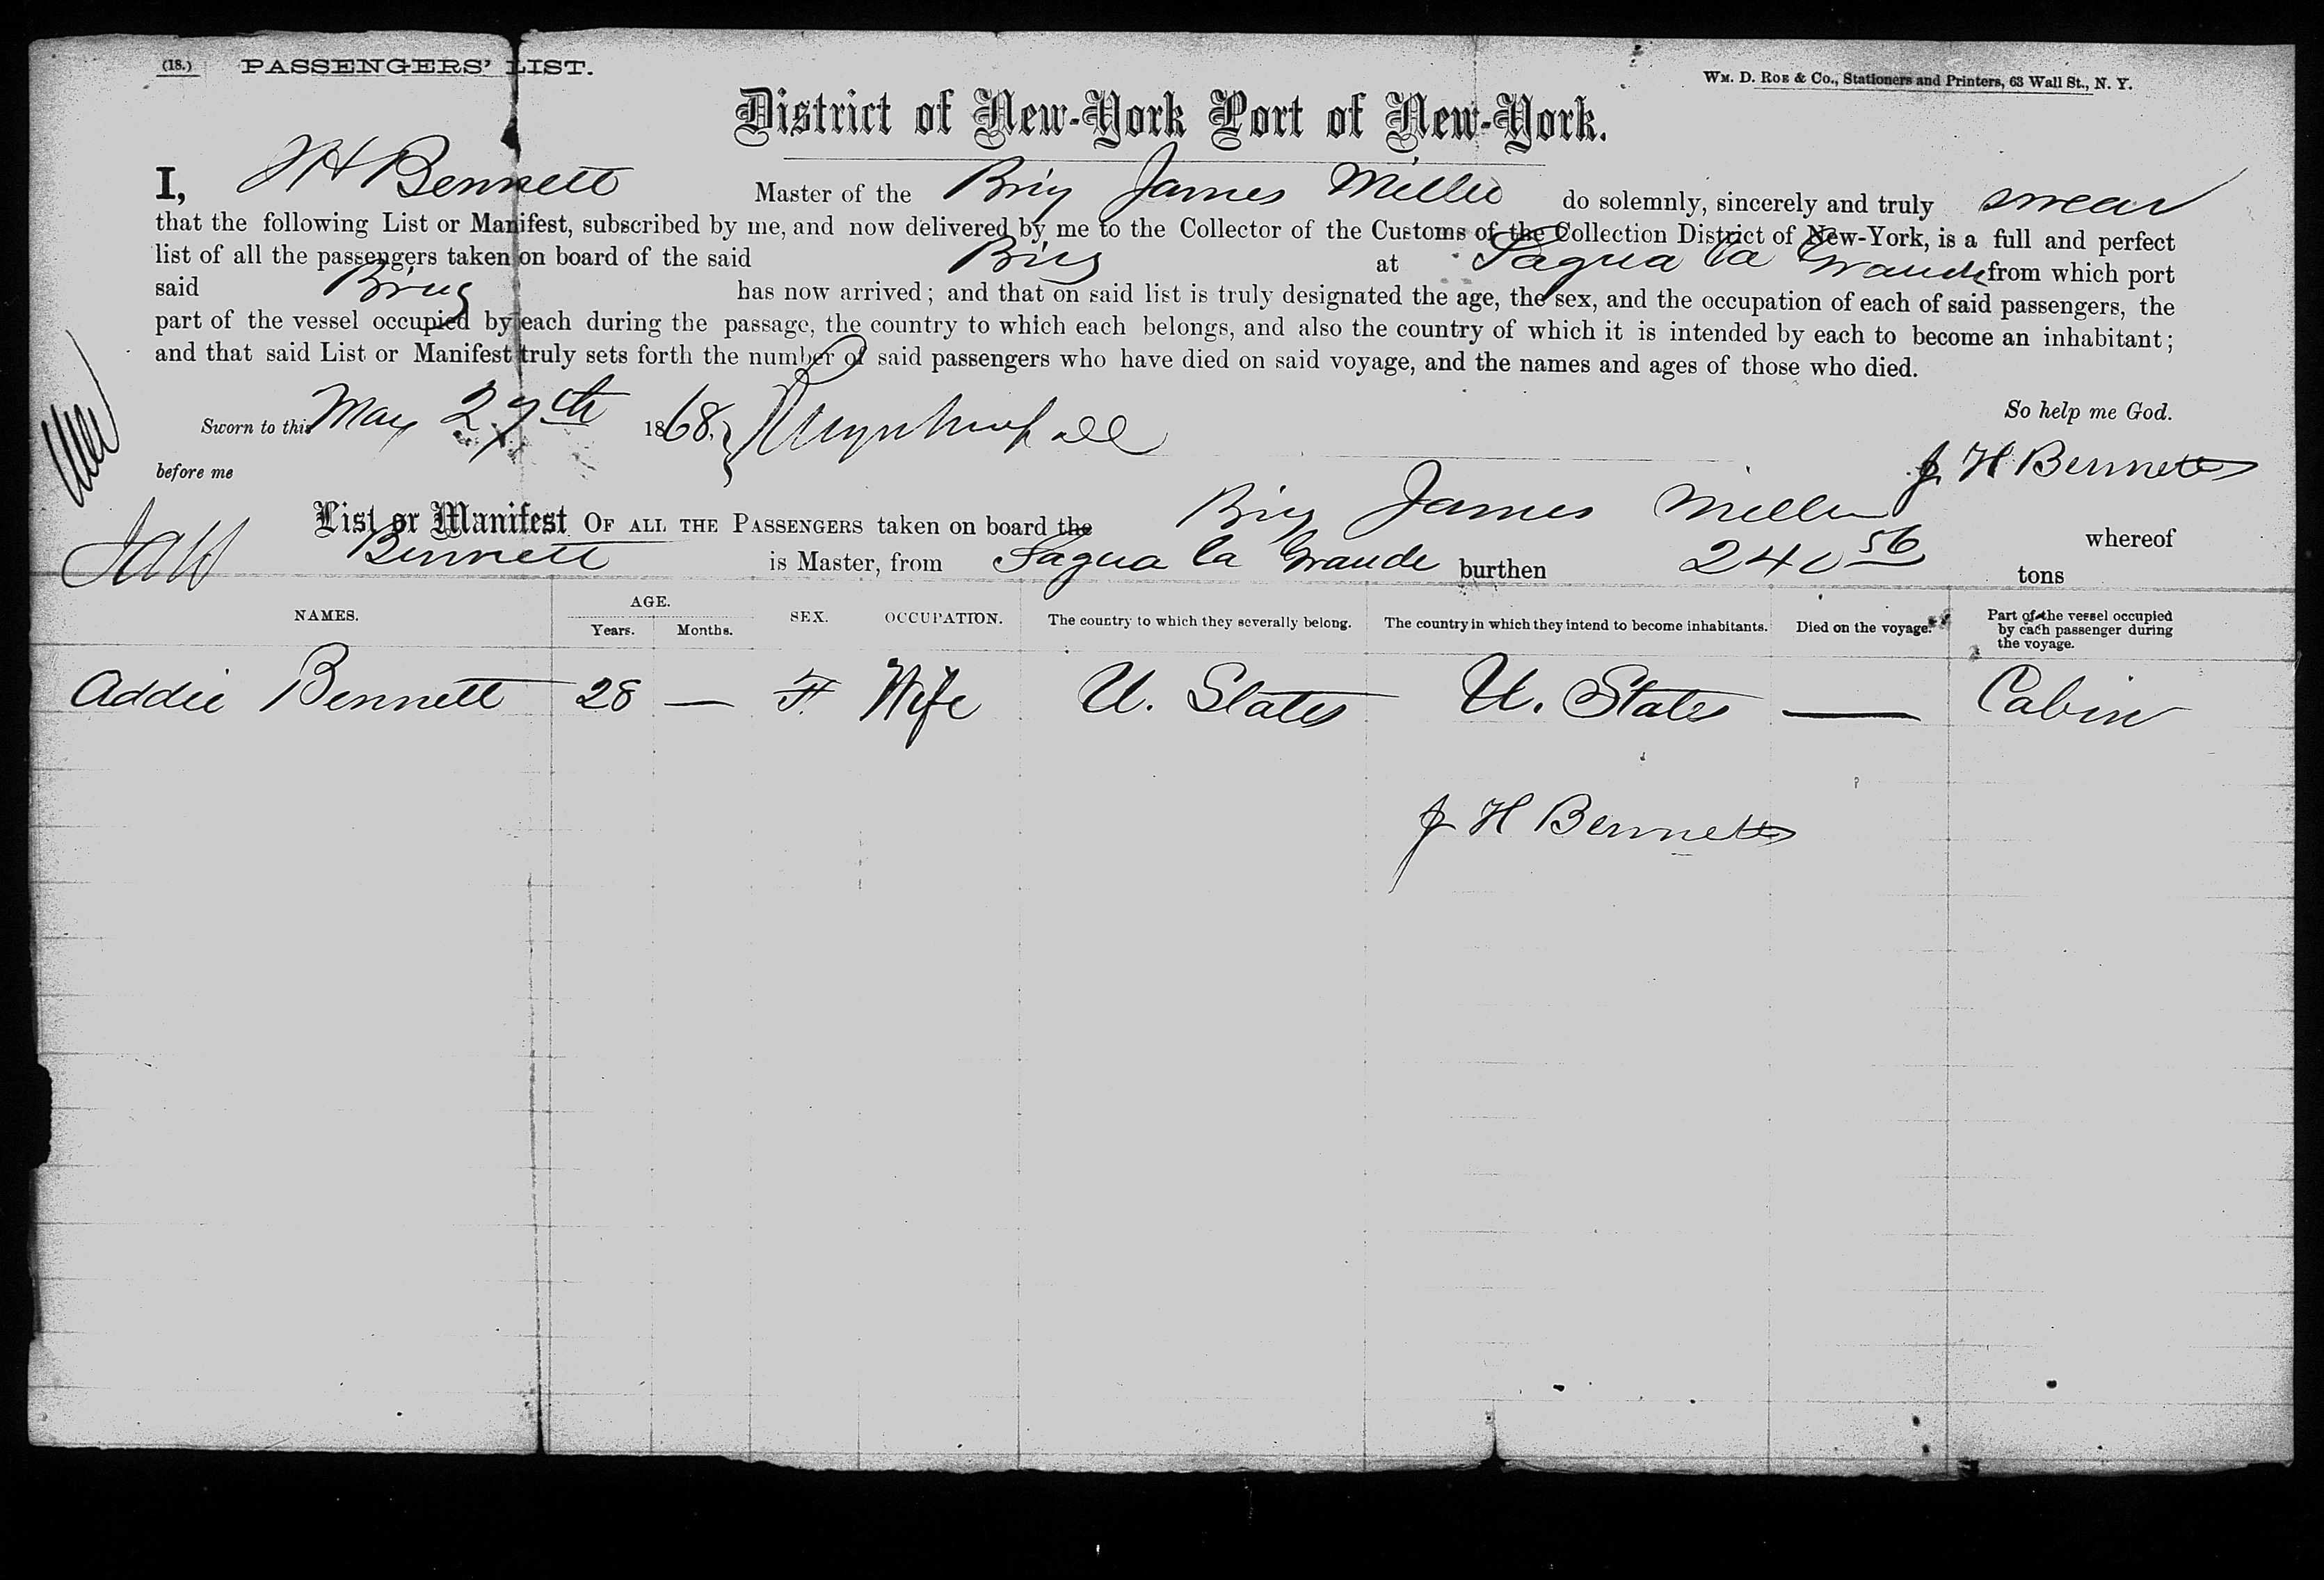 (18.) PASSENGERS' LIST.
WM. D. ROE & CO., Stationers and Printers, 63 Wall St., N. Y.
District of New-York Port of New-York.
I, J H Bennett Master of the Brig James Miller do solemnly, sincerely and truly swear
that the following List or Manifest, subscribed by me, and now delivered by me to the Collector of the Customs of the Collection District of New-York, is a full and perfect
list of all the passengers taken on board of the said Brig at Sagua la Grande from which port
said Brig has now arrived; and that on said list is truly designated the age, the sex, and the occupation of each of said passengers, the
part of the vessel occupied by each during the passage, the country to which each belongs, and also the country of which it is intended by each to become an inhabitant;
and that said List or Manifest truly sets forth the number of said passengers who have died on said voyage, and the names and ages of those who died.
So help me God.
Sworn to this May 29th 1868.
before me
J H Bennett
List or Manifest OF ALL THE PASSENGERS taken on board the Brig James Miller whereof
Bennett is Master, from Sagua la Grande burthen 240 56 tons
NAMES. AGE. Years. Months. SEX. OCCUPATION. The country to which they severally belong. The country in which they intend to become inhabitants. Died on the voyage. Part of the vessel occupied by each passenger during the voyage.
Addie Bennett 28 — F. Wife U. States U. States — Cabin
J H Bennett